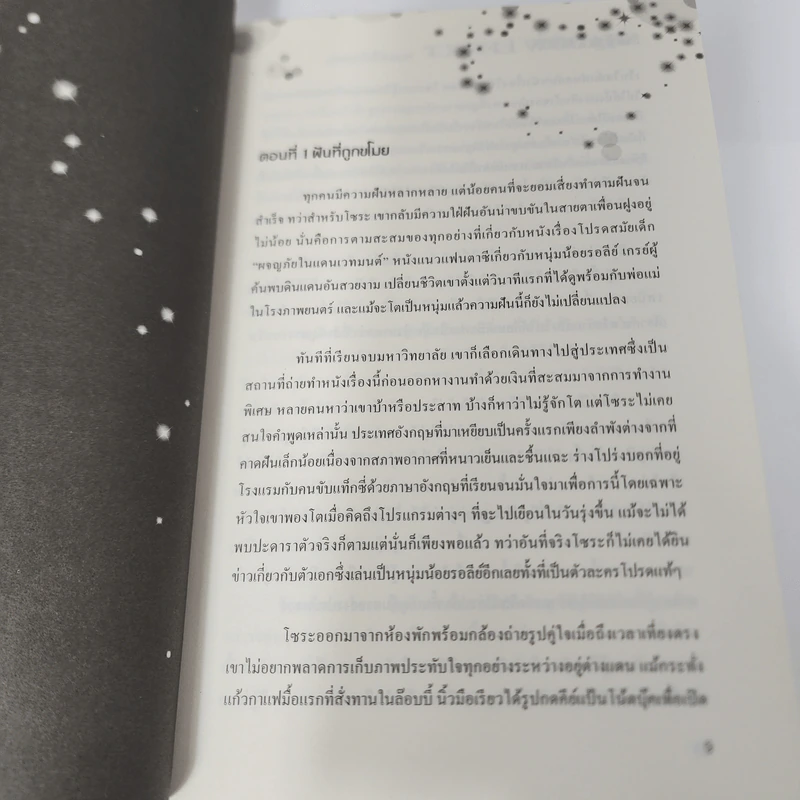 ตอนที่ 1 ฝันที่ถูกขโมย
ทุกคนมีความฝันหลากหลาย แต่น้อยคนที่จะยอมเสี่ยงทำตามฝันจน
สำเร็จ ทว่าสำหรับโซระ เขากลับมีความใฝ่ฝันอันน่าขบขันในสายตาเพื่อนฝูงอยู่
ไม่น้อย นั่นคือการตามสะสมของทุกอย่างที่เกี่ยวกับหนังเรื่องโปรดสมัยเด็ก
“ผจญภัยในแดนเวทมนต์” หนังแนวแฟนตาซีเกี่ยวกับหนุ่มน้อยรอลีย์ เกรย์ผู้
ค้นพบดินแดนอันสวยงาม เปลี่ยนชีวิตเขาตั้งแต่วินาทีแรกที่ได้ดูพร้อมกับพ่อแม่
ในโรงภาพยนตร์ และแม้จะโตเป็นหนุ่มแล้วความฝันนี้ก็ยังไม่เปลี่ยนแปลง
ทันทีที่เรียนจบมหาวิทยาลัย เขาก็เลือกเดินทางไปสู่ประเทศซึ่งเป็น
สถานที่ถ่ายทำหนังเรื่องนี้ก่อนออกหางานทำด้วยเงินที่สะสมมาจากการทำงาน
พิเศษ หลายคนหาว่าเขาบ้าหรือประสาท บ้างก็หาว่าไม่รู้จักโต แต่โซระไม่เคย
สนใจคำพูดเหล่านั้น ประเทศอังกฤษที่มาเหยียบเป็นครั้งแรกเพียงลำพังต่างจากที่
คาดฝันเล็กน้อยเนื่องจากสภาพอากาศที่หนาวเย็นและชื้นแฉะ ร่างโปร่งบอกที่อยู่
โรงแรมกับคนขับแท็กซี่ด้วยภาษาอังกฤษที่เรียนจนมั่นใจมาเพื่อการนี้โดยเฉพาะ
หัวใจเขาพองโตเมื่อคิดถึงโปรแกรมต่างๆ ที่จะไปเยือนในวันรุ่งขึ้น แม้จะไม่ได้
พบปะดาราตัวจริงก็ตามแต่นั่นก็เพียงพอแล้ว ทว่าอันที่จริงโซระก็ไม่เคยได้ยิน
ข่าวเกี่ยวกับตัวเอกซึ่งเล่นเป็นหนุ่มน้อยรอลีย์อีกเลยทั้งที่เป็นตัวละครโปรดแท้ๆ
โซระออกมาจากห้องพักพร้อมกล้องถ่ายรูปคู่ใจเมื่อถึงเวลาเที่ยงตรง
เขาไม่อยากพลาดการเก็บภาพประทับใจทุกอย่างระหว่างอยู่ต่างแดน แม้กระทั่ง
แก้วกาแฟมื้อแรกที่สั่งทานในล๊อบบี้ นิ้วมือเรียวได้รูปกดคีย์แป้นโน้ตบุ๊คเพื่อเปิด
9